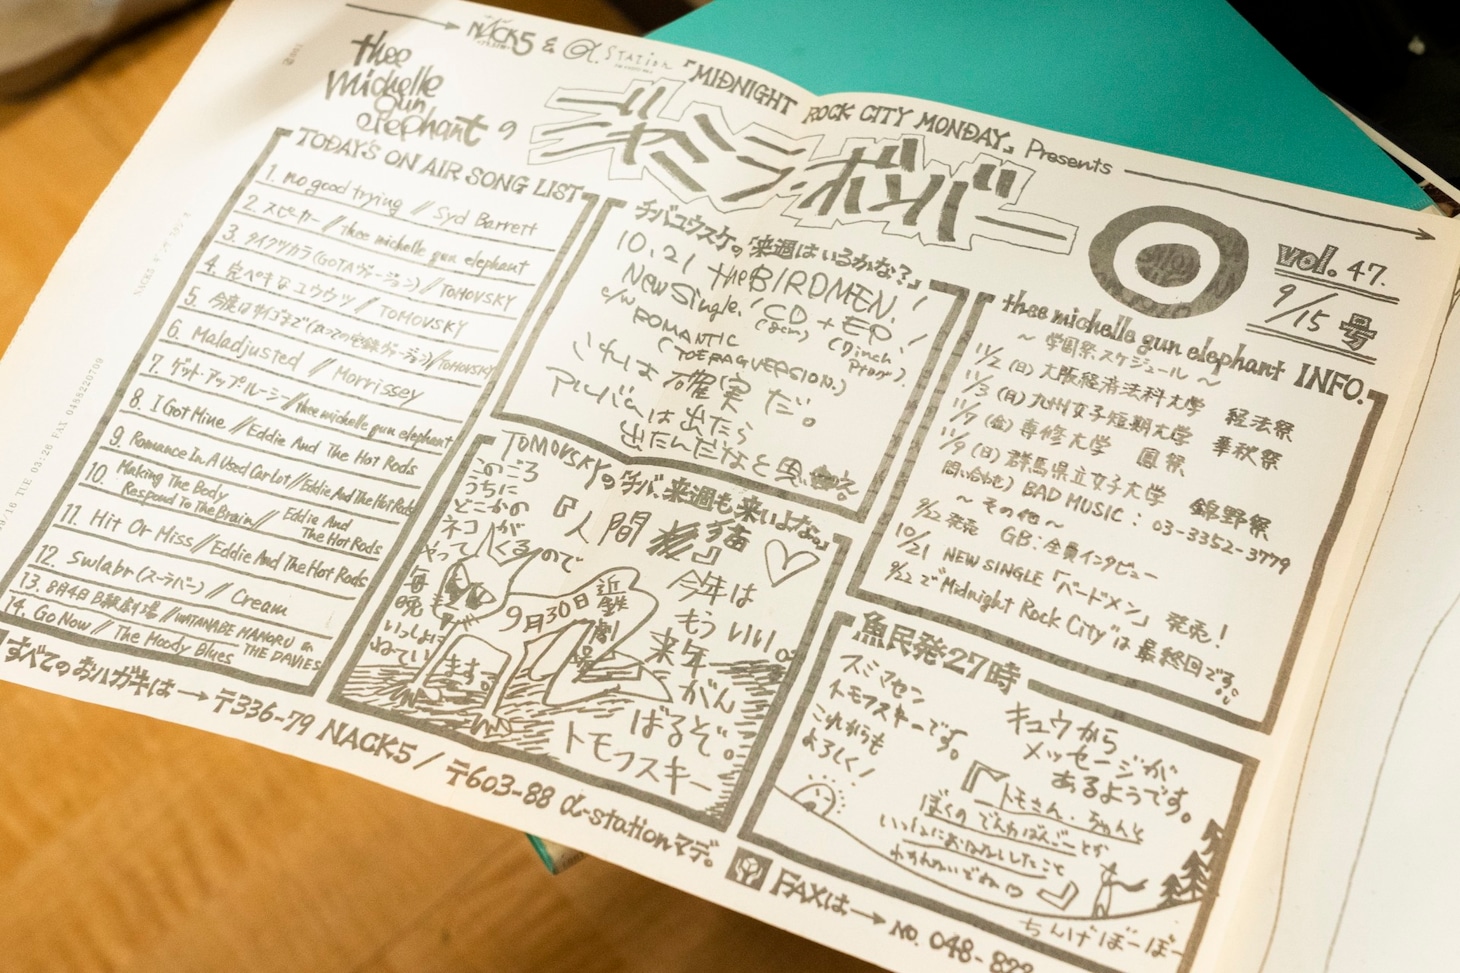 NACK5 & α-station 「MIDNIGHT ROCK CITY MONDAY」 Presents
thee
michelle
gun
elephant の
ジャミラ・ボンバー
vol. 47.
9/15 号
TODAY'S ON AIR SONG LIST
1. no good trying // Syd Barrett
2. スピーカー // thee michelle gun elephant
3. タイクツカラ (GOTAヴァージョン) // TOMOVSKY
4. 完ペキなユウウツ // TOMOVSKY
5. 今度はサイゴまで // TOMOVSKY
6. Maladjusted // Morrissey
7. ゲット・アップ・ルーシー // thee michelle gun elephant
8. I Got Mine // Eddie And The Hot Rods
9. Romance In A Used Car Lot // Eddie And The Hot Rods
10. Making The Body
Respond To The Brain // Eddie And
The Hot Rods
11. Hit Or Miss // Eddie And The Hot Rods
12. Swlabr (スーラバー) // Cream
13. 8月4日 B級劇場 // WATANABE MAMORU & THE DAVIES
14. Go Now // The Moody Blues
チバユウスケの「来週はいるかな?」
10.21 the BIRDMEN!
New Single! CD + EP!
(8cm) (7inch)
c/w ROMANTIC
(TOERAG VERSION.)
これは確実だ。
アルバムは出たら
出たんだなと思
TOMOVSKYの「チバ、来週も来いよな。」
このごろ
うちに
どこかの
ネコが
やってくるので
毎
晩
いっしょに
ねてい
ます。
『人間 猫』
9月30日 近鉄劇場
今年は
もういい。
来年
がん
ばるぞ。
トモフスキー
thee michelle gun elephant INFO.
〜 学園祭スケジュール 〜
11/2 (日) 大阪経済法科大学 経法祭
11/3 (月) 九州女子短期大学 華秋祭
11/7 (金) 専修大学 鳳祭
11/9 (日) 群馬県立女子大学 錦野祭
問い合わせ) BAD MUSIC : 03-3352-3779
〜 その他 〜
9/22 発売 GB: 全員インタビュー
10/21 NEW SINGLE 「バードメン」 発売!
9/22 で "Midnight Rock City" は最終回です。
魚民発27時
スミマセン
トモフスキーです。
これからも
よろしく!
キュウから
メッセージが
あるようです。
「トモさん、ちゃんと
ぼくの でんわばんごーとか
ちんげぼーぼー
すべてのおハガキは → 〒336-79 NACK5 / 〒603-88 α-stationマデ。
FAXは → NO. 048-822
TUE 03:26 FAX 0488220709